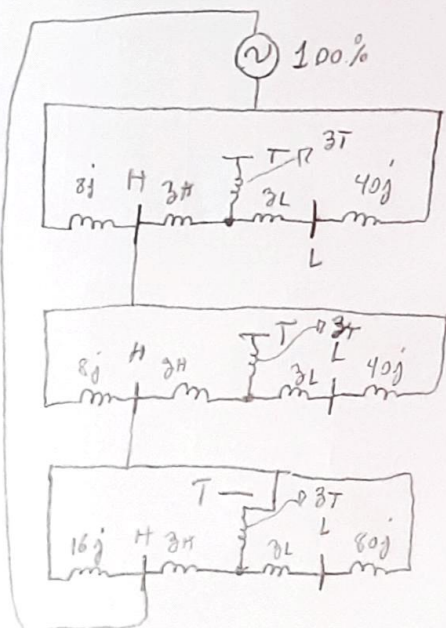 100%
T 3T
8j H 3H 3L 40j
L
T 3T
L
8j H 3H 3L 40j
T 3T
L
16j H 3H 3L 80j